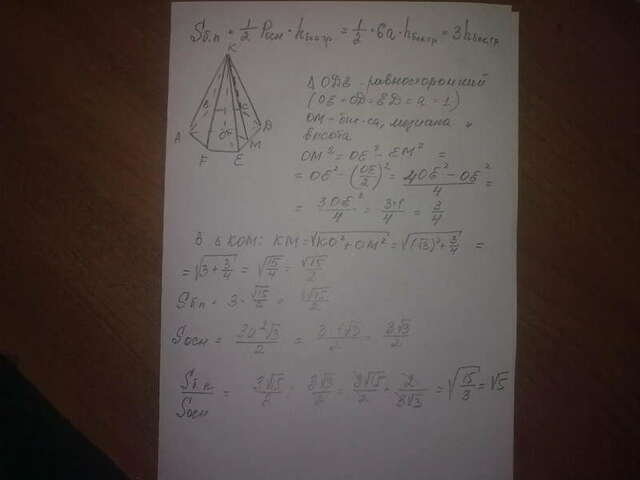 Sб.п = 1/2 Pосн · hбоктр = 1/2 · 6a · hбоктр = 3hбоктр
K
A
F
E
M
D
Δ ODE - равносторонний
(OE = OD = ED = a = 1)
OM - бис-са, медиана и
высота
OM² = OE² - EM² =
= OE² - (OE/2)² = (4OE² - OE²)/4 =
= 3OE²/4 = 3·1/4 = 3/4
В Δ KOM: KM = √(KO² + OM²) = √((√3)² + 3/4) =
= √(3 + 3/4) = √(15/4) = √15/2
Sб.п = 3 · √15/2 = 3√15/2
Sосн = 3a²√3/2 = 3·1√3/2 = 3√3/2
Sб.п/Sосн = 3√15/2 : 3√3/2 = 3√15/2 · 2/3√3 = √(15/3) = √5